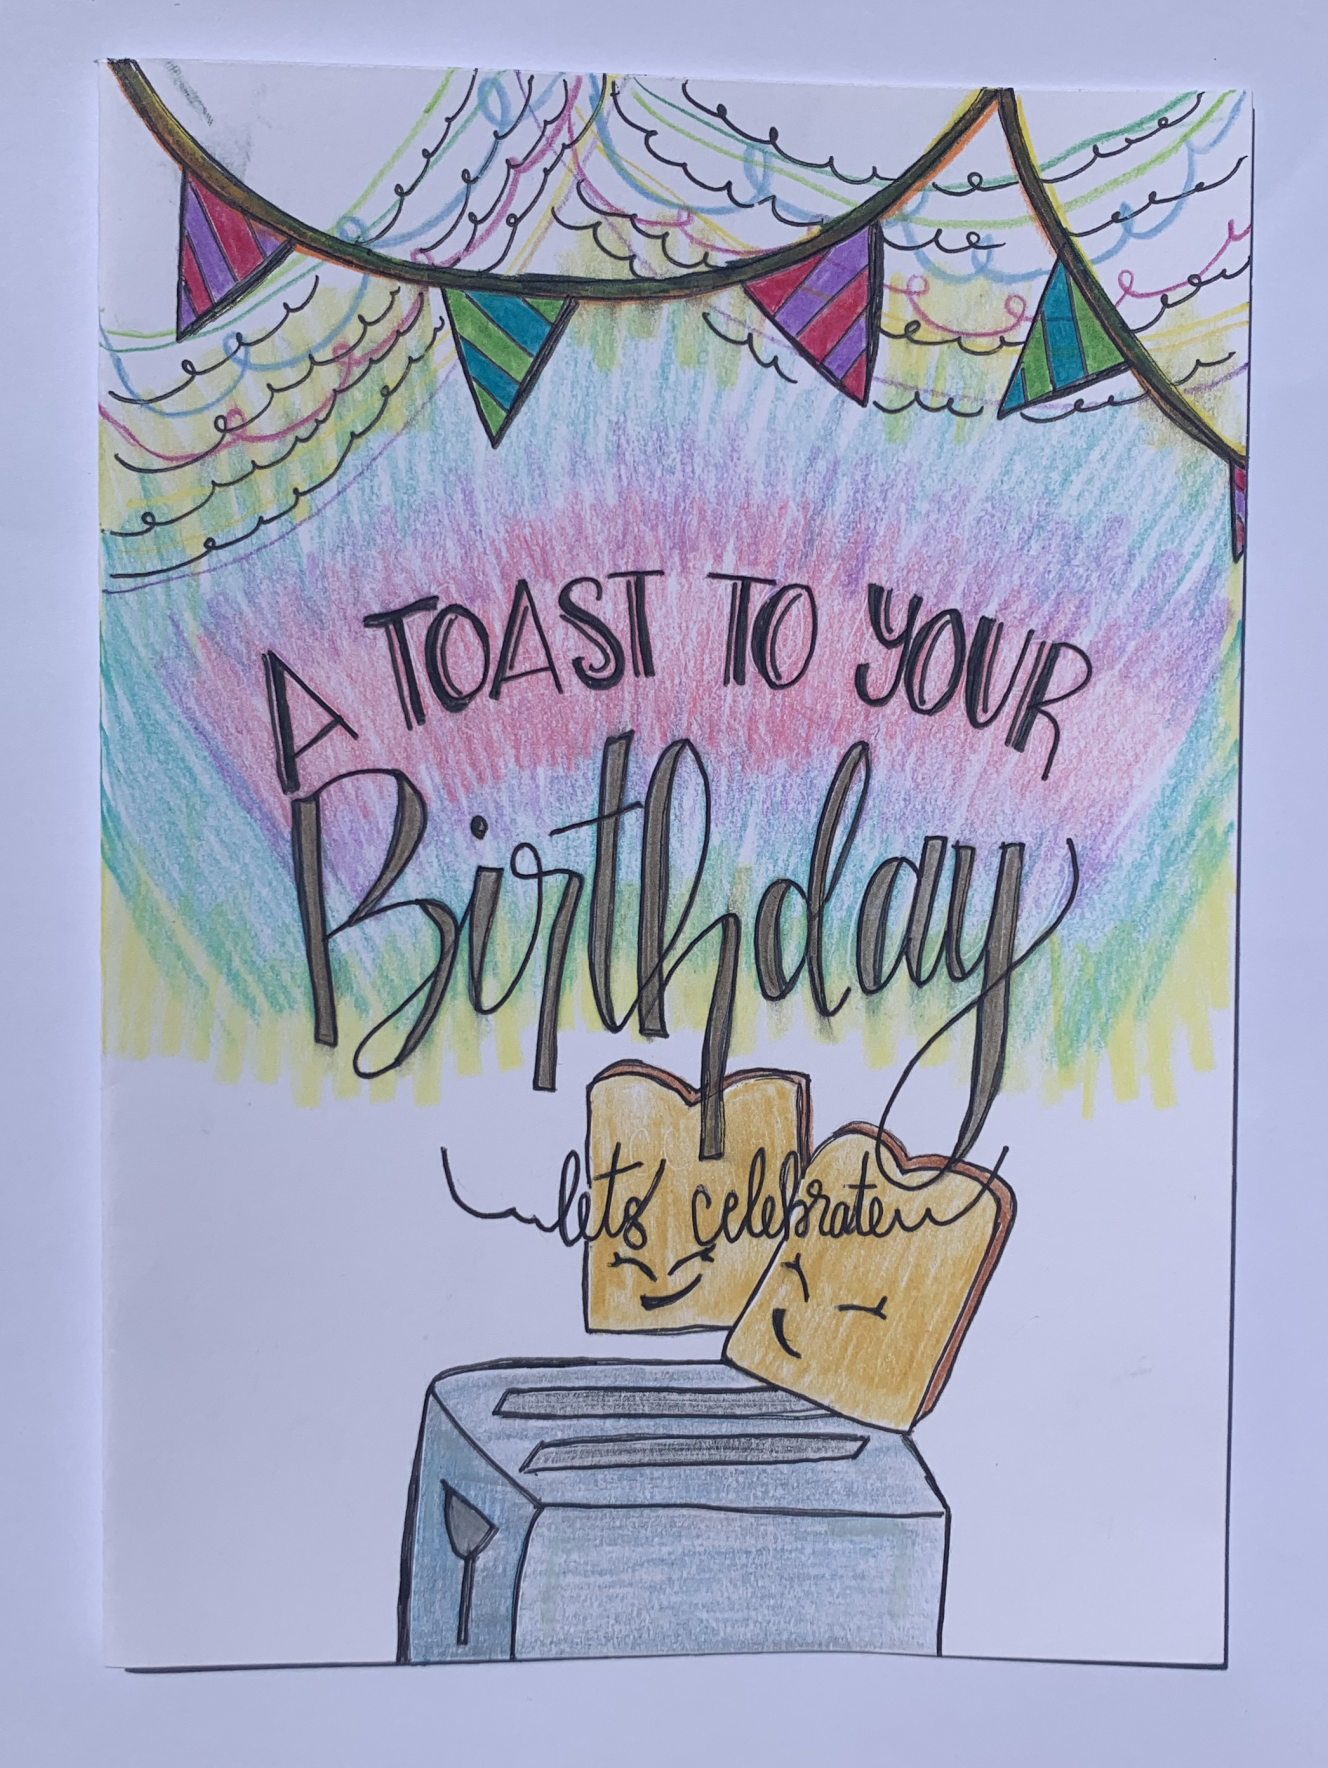 A TOAST TO YOUR
Birthday
lets celebrate